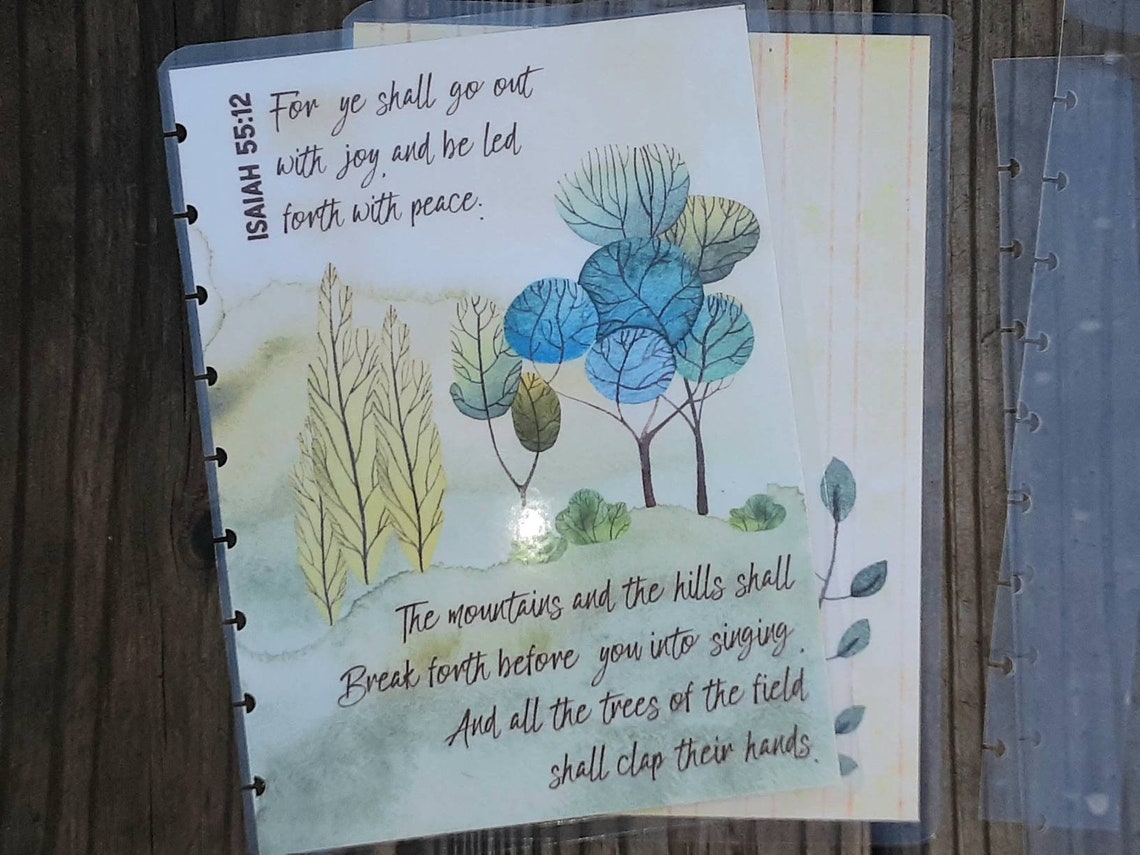 ISAIAH 55:12
For ye shall go out
with joy, and be led
forth with peace:
The mountains and the hills shall
Break forth before you into singing,
And all the trees of the field
shall clap their hands.